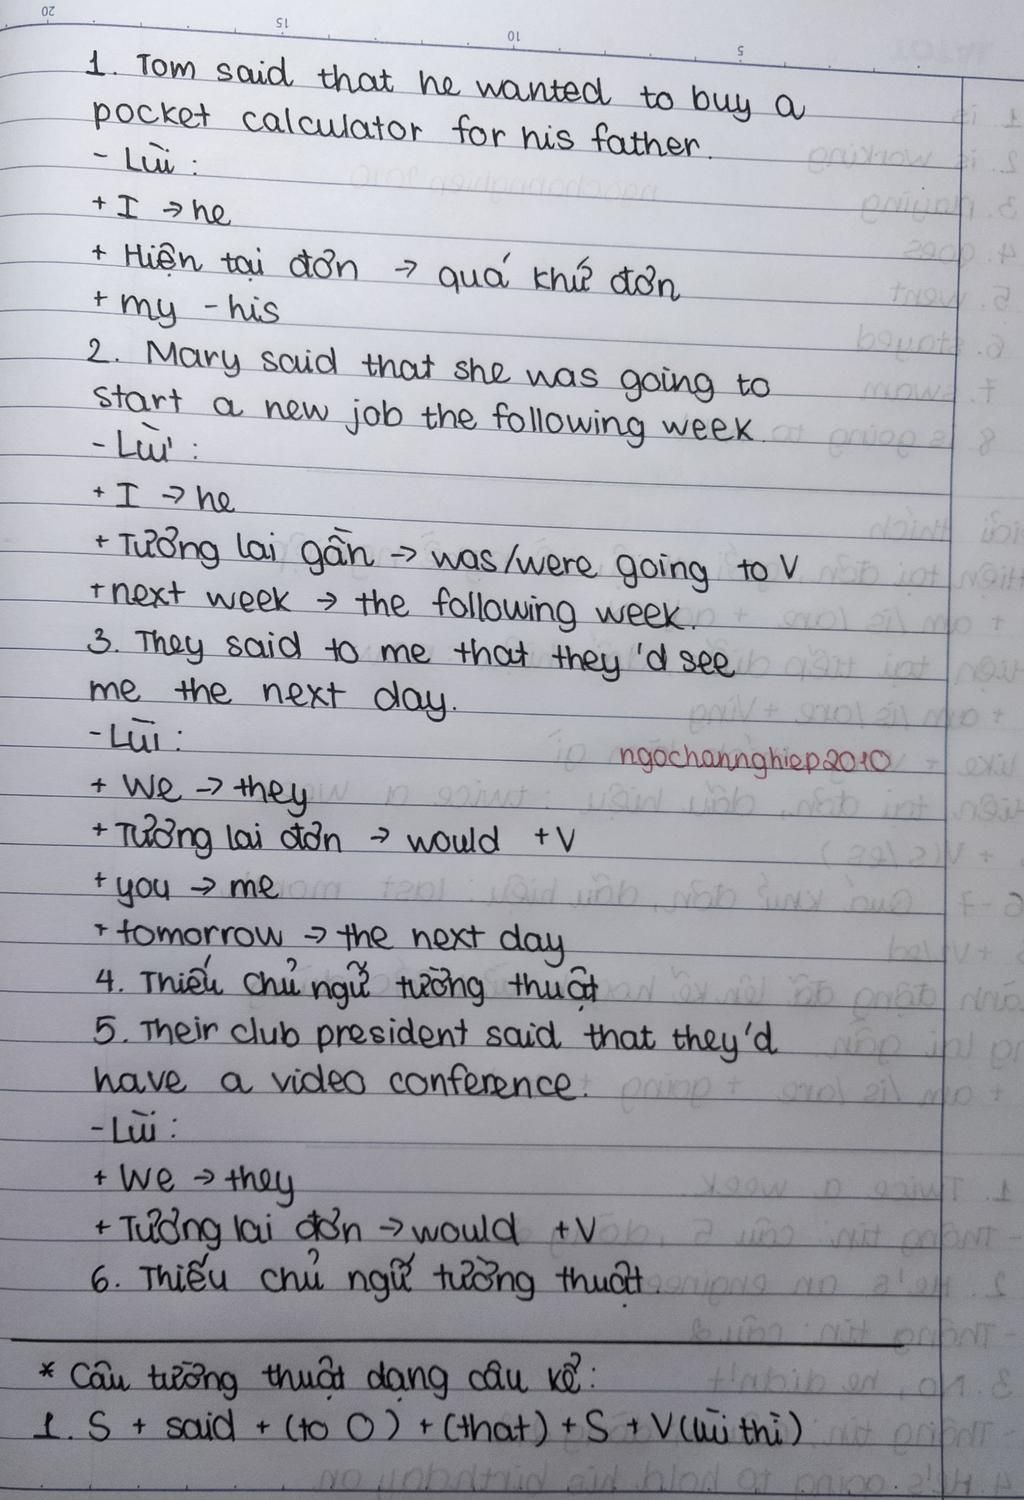 20 15 10 5
1. Tom said that he wanted to buy a
pocket calculator for his father.
- Lùi :
+ I → he
+ Hiện tại đơn → quá khứ đơn
+ my - his
2. Mary said that she was going to
start a new job the following week.
- Lùi :
+ I → he
+ Tương lai gần → was/were going to V
+ next week → the following week.
3. They said to me that they'd see
me the next day.
- Lùi :
ngochannghiep2010
+ We → they
+ Tương lai đơn → would + V
+ you → me
+ tomorrow → the next day
4. Thiếu chủ ngữ tường thuật
5. Their club president said that they'd
have a video conference.
- Lùi :
+ We → they
+ Tương lai đơn → would + V
6. Thiếu chủ ngữ tường thuật.
* Câu tường thuật dạng câu kể:
1. S + said + (to O) + (that) + S + V (lùi thì)